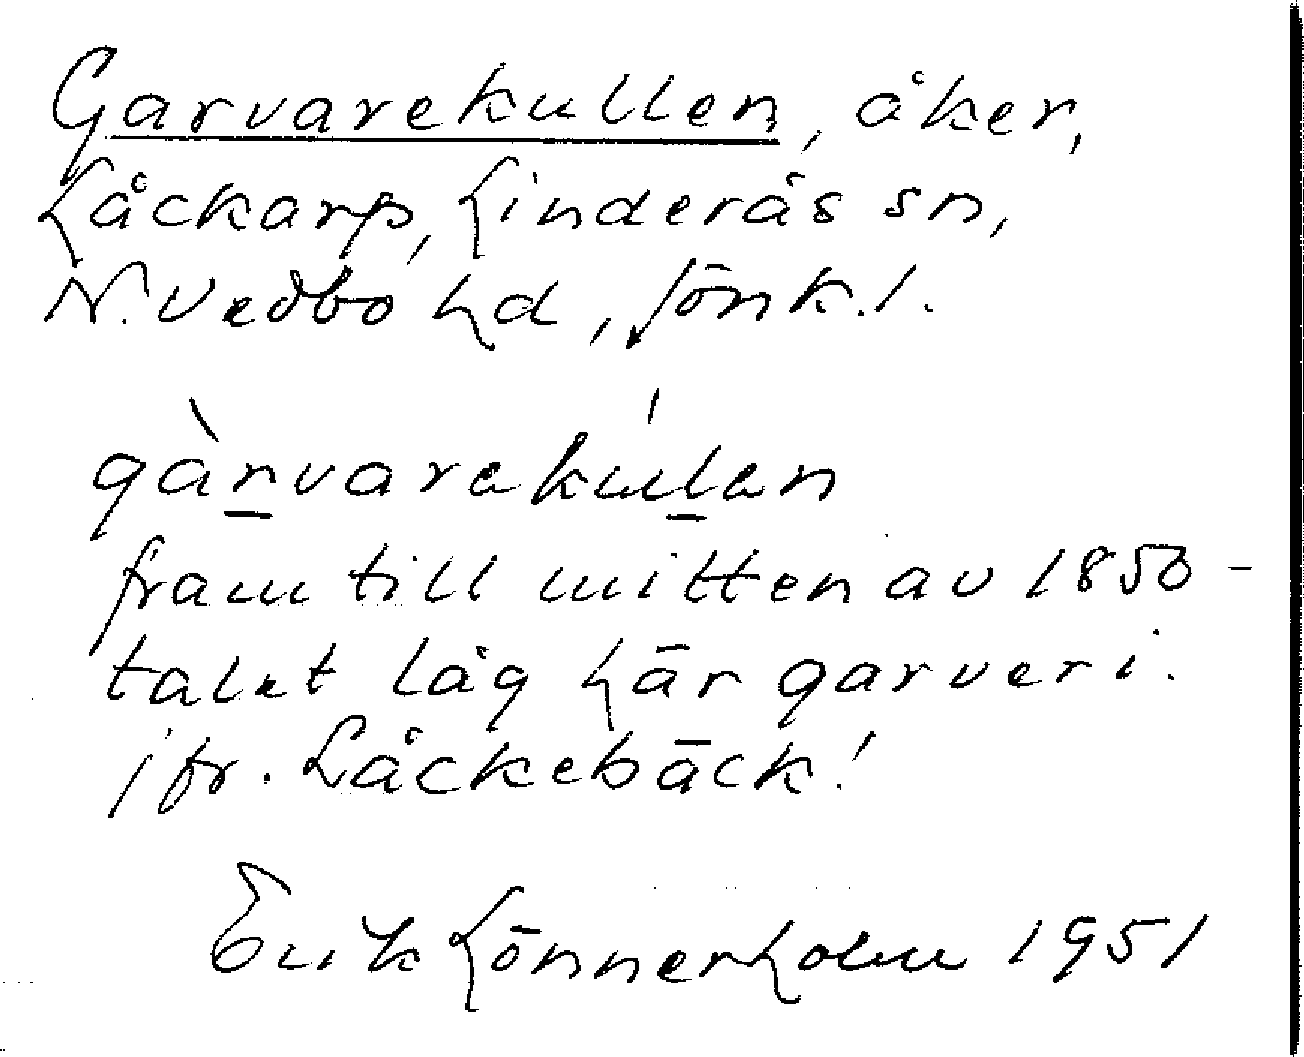 Garvarekullen, åker,
Låckarp, Linderås sn,
N. Vedbo hd, Jönk. l.
gàrvarekúlen
fram till mitten av 1850-
talet låg här garveri.
jfr. Låckebäck!
Erik Lönnerholm 1951